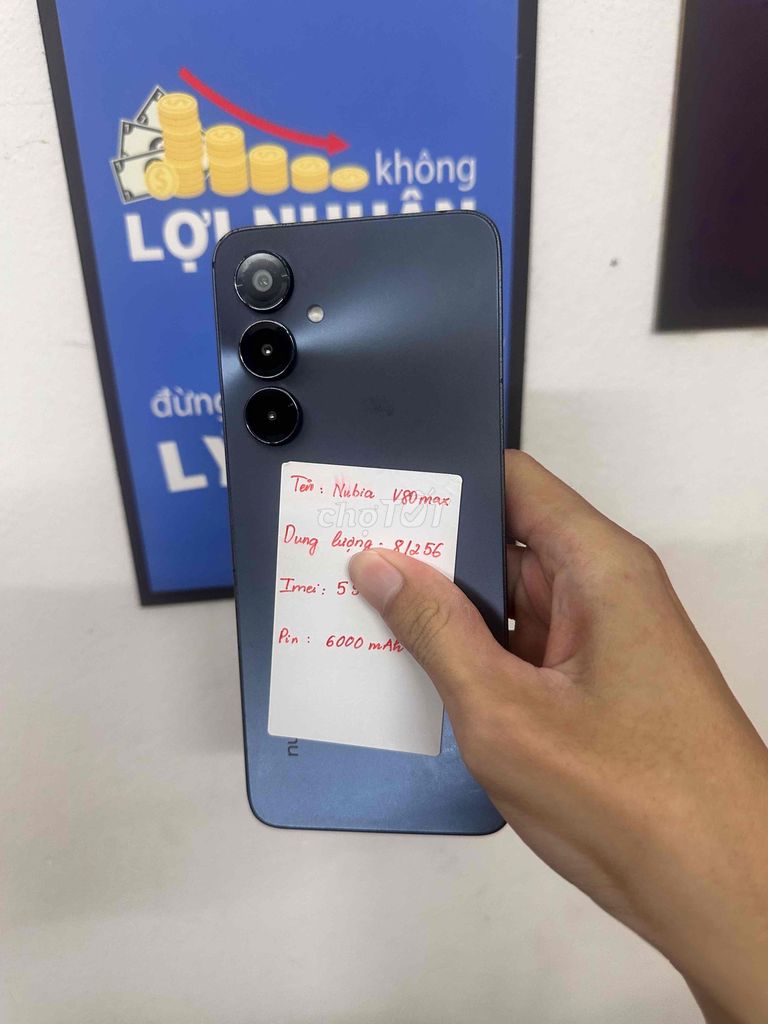 không
LỢI NHUẬN
đừng
LY
Tên: Nubia V80 max
chợTỐT
Dung lượng: 8/256
Imei: 5
Pin: 6000 mAh
nu